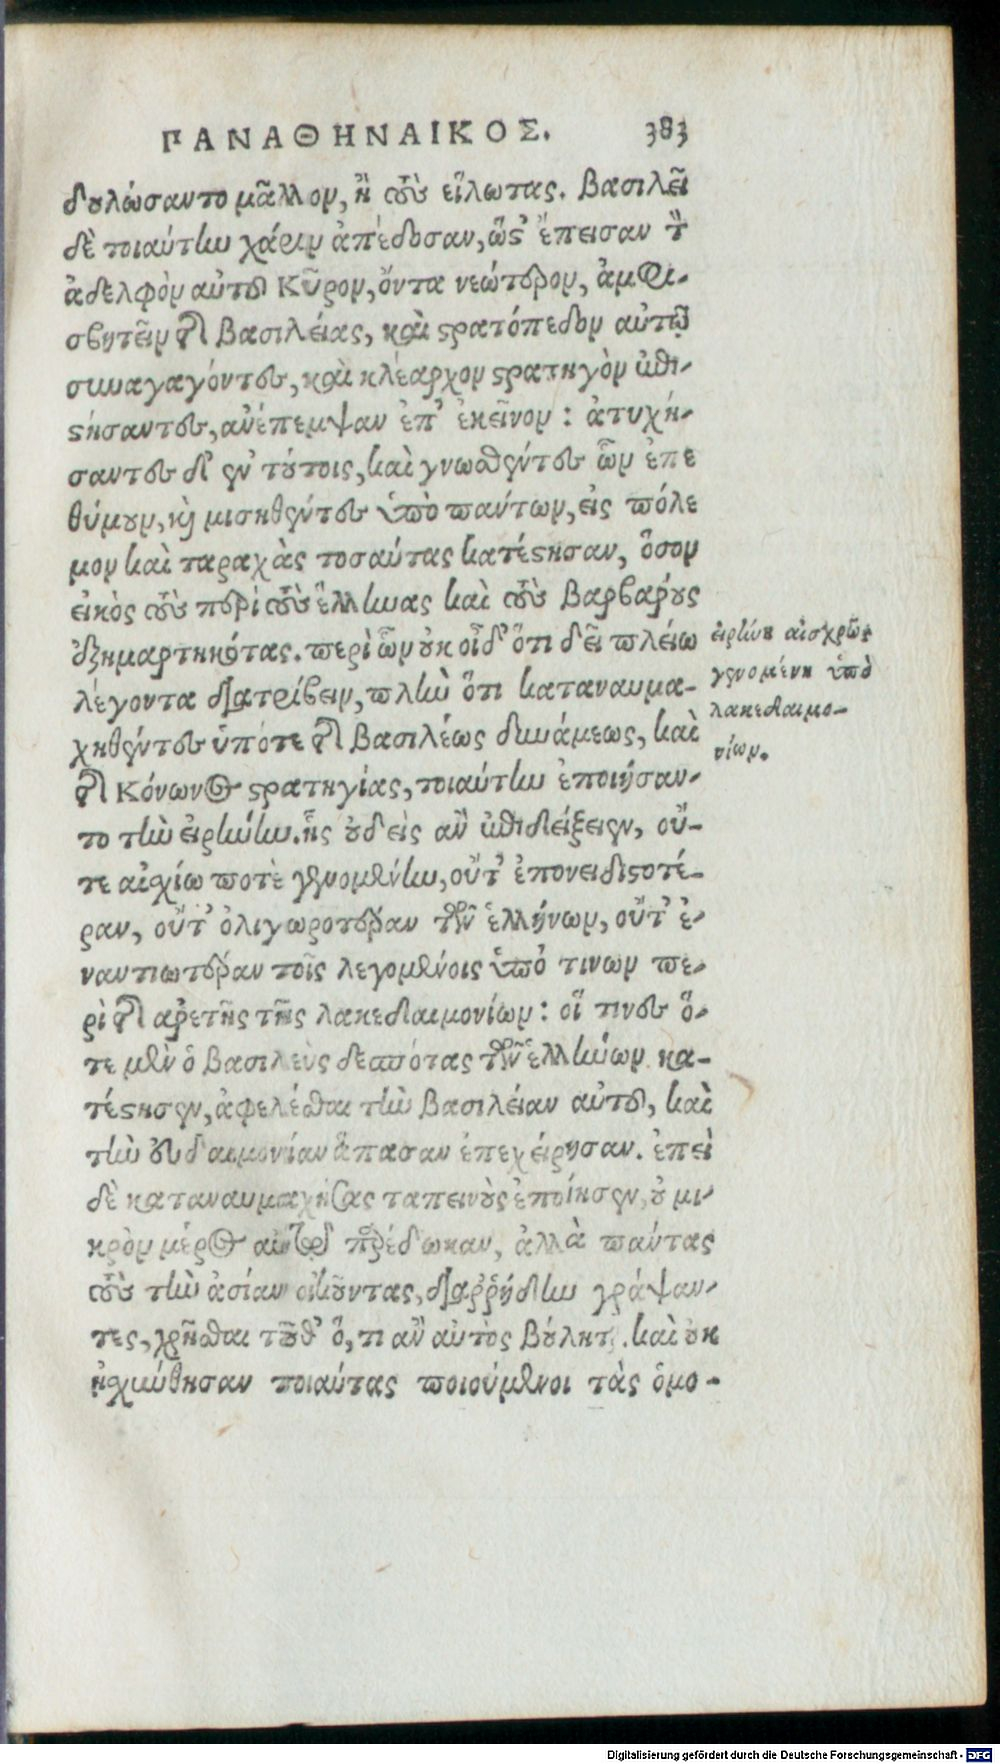 ΠΑΝΑΘΗΝΑΙΚΟΣ. 383
δουλώσαντο μᾶλλον, ἢ τοὺς εἵλωτας. Βασιλεῖ
δὲ τοιαύτην χάριν ἀπέδοσαν, ὥςτ' ἔπεισαν τὸν
ἀδελφὸν αὐτοῦ Κῦρον, ὄντα νεώτερον, ἀμφι-
σβητεῖν τῆς Βασιλείας, καὶ στρατόπεδον αὐτῷ
συναγαγόντες, καὶ κλέαρχον στρατηγὸν ἐπι-
στήσαντες, ἀνέπεμψαν ἐπ' ἐκεῖνον: ἀτυχή-
σαντες δ' ἐν τούτοις, καὶ γνωσθέντες ὧν ἐπε
θύμουν, καὶ μισηθέντες ὑπὸ πάντων, εἰς πόλε
μον καὶ ταραχὰς τοσαύτας κατέστησαν, ὅσον
εἰκὸς τοὺς περὶ τοὺς ἕλληνας καὶ τοὺς Βαρβαρους
ἐξημαρτηκότας. περὶ ὧν οὐκ οἶδ' ὅτι δεῖ πλείω
λέγοντα διατρίβειν, πλὴν ὅτι καταναυμα-
χηθέντες ὑπότε τῆς Βασιλέως δυνάμεως, καὶ
τῆς Κόνωνος στρατηγίας, τοιαύτην ἐποιήσαν-
το τὴν εἰρήνην. ἧς οὐδεὶς ἂν ἐπιδείξειεν, οὔ-
τε αἰσχίω ποτὲ γενομένην, οὔτ' ἐπονειδιστοτέ-
ραν, οὔτ' ὀλιγωροτέραν τῶν ἑλλήνων, οὔτ' ἐ-
ναντιωτέραν τοῖς λεγομένοις ὑπό τινων πε-
ρὶ τῆς ἀρετῆς τῆς λακεδαιμονίων: οἵ τινες ὅ-
τε μὲν ὁ βασιλεὺς δεσπότας τῶν ἑλλήνων κα-
τέστησεν, ἀφελέσθαι τὴν Βασιλείαν αὐτοῦ, καὶ
τὴν εὐδαιμονίαν ἅπασαν ἐπεχείρησαν. ἐπεὶ
δὲ καταναυμαχήσας ταπεινοὺς ἐποίησεν, οὐ μι-
κρὸν μέρος αὐτῷ παρέδωκαν, ἀλλὰ πάντας
τοὺς τὴν ἀσίαν οἰκοῦντας, διαῤῥήδην γράψαν-
τες, χρῆσθαι τοῦθ' ὅ, τι ἂν αὐτὸς Βούληται. καὶ οὐκ
ᾐσχύνθησαν τοιαύτας ποιούμενοι τὰς ὁμο-
εἰρήνη αἰσχρῶς
γενομένη ὑπὸ
λακεδαιμο-
νίων.
Digitalisierung gefördert durch die Deutsche Forschungsgemeinschaft - DFG